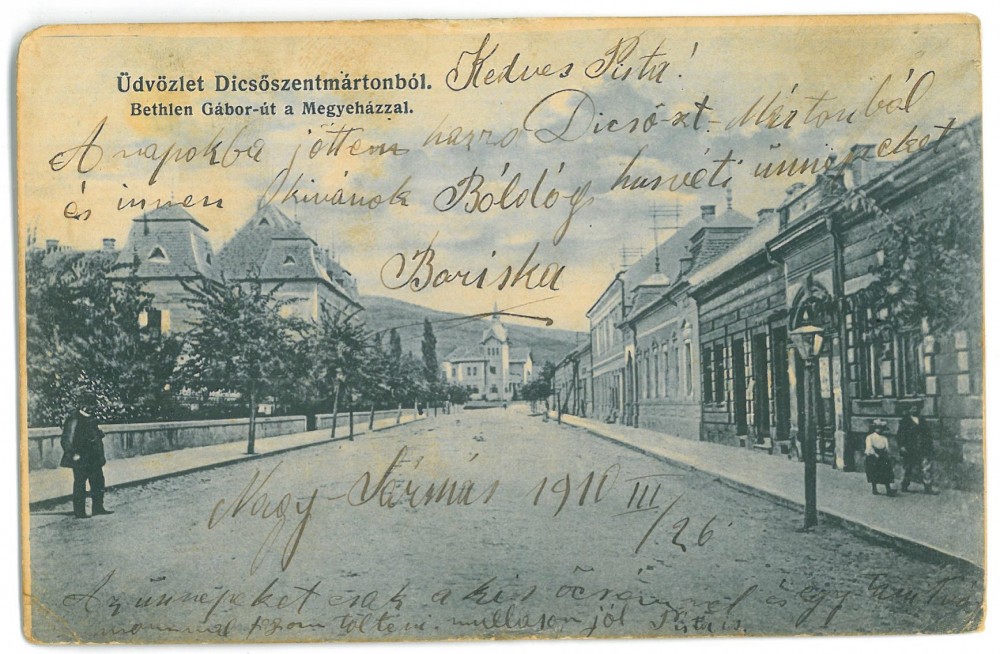 Üdvözlet Dicsőszentmártonból.
Bethlen Gábor-út a Megyeházzal.
Kedves Pista!
A napokba jöttem haza Dicső-szt. Mártonból
és innen kivánok Bóldóg husvéti ünnepeket
Boriska
Nagy-Sármás 1910 III/26
Az ünnepeket csak a kis öcsémmel és egy
töltem. mulasson jól Pista is.